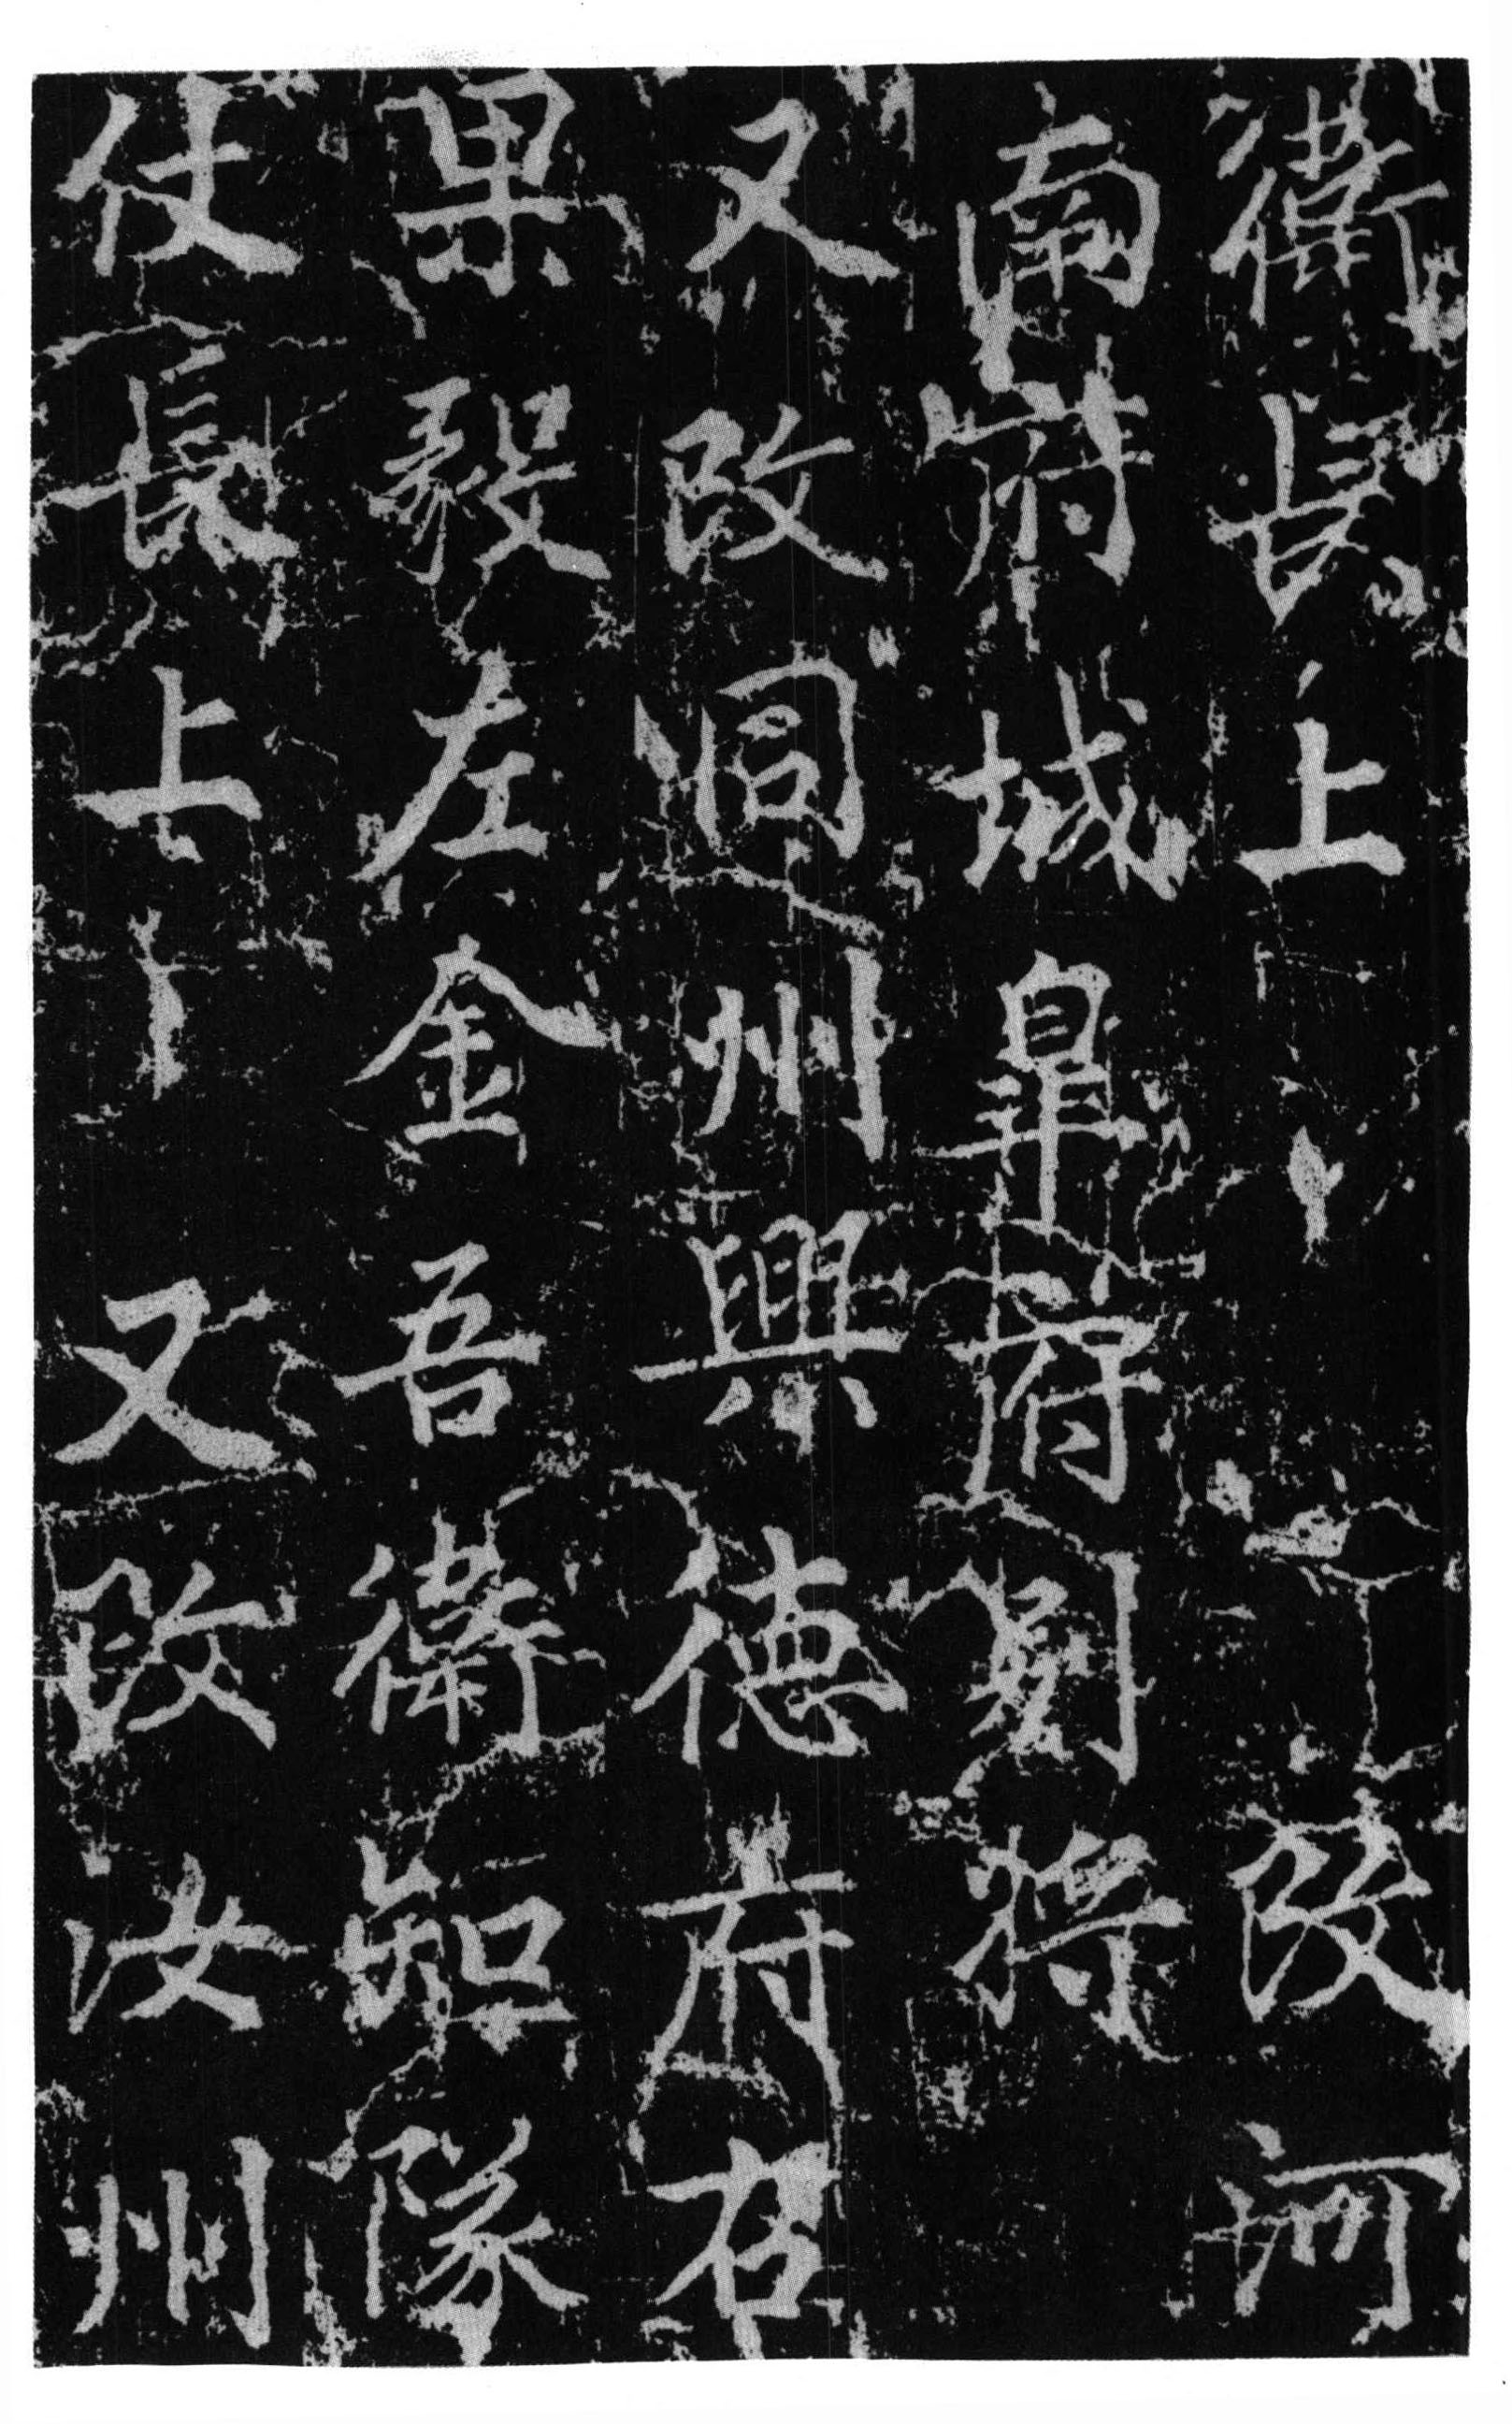 衛長上改河
南府城皋府別將
又改同州興德府右
果毅左金吾衛知隊
仗長上又改汝州